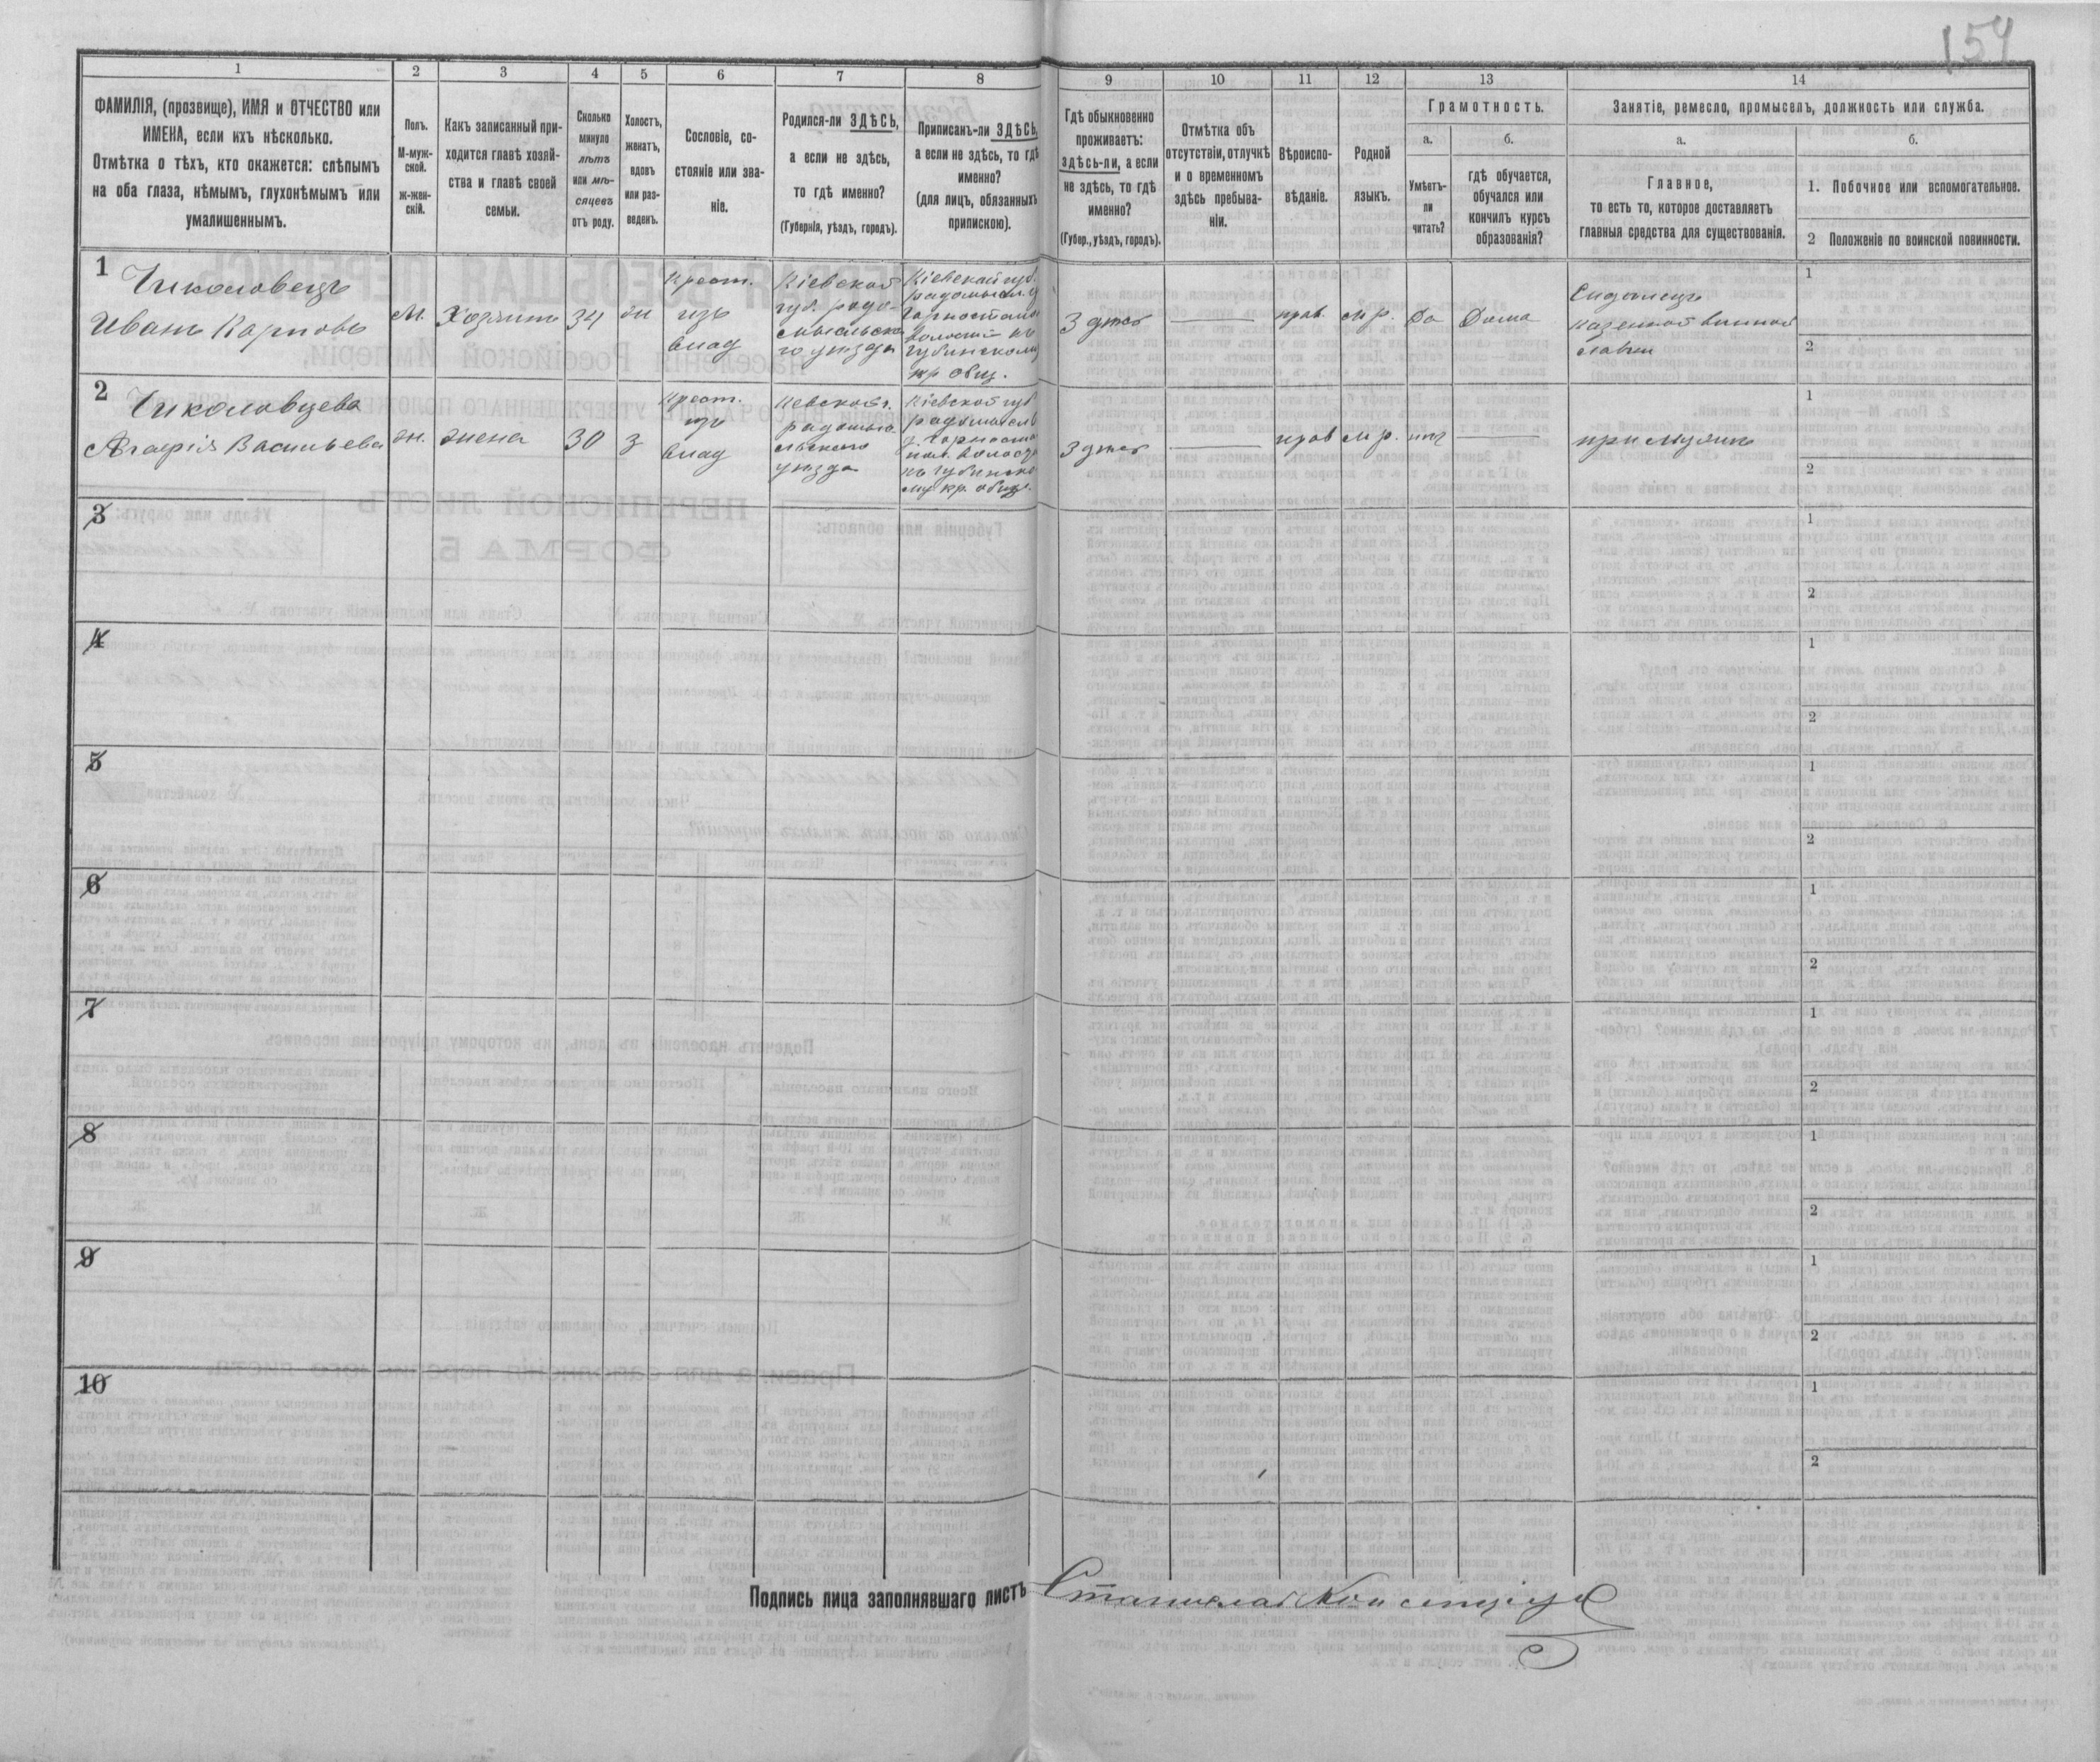 154
1
2
3
4
5
6
7
8
9
10
11
12
13
14
ФАМИЛІЯ, (прозвище), ИМЯ и ОТЧЕСТВО или
ИМЕНА, если ихъ нѣсколько.
Отмѣтка о тѣхъ, кто окажется: слѣпымъ
на оба глаза, нѣмымъ, глухонѣмымъ или
умалишеннымъ.
Полъ.
М-муж-
ской.
ж-жен-
скій.
Какъ записанный при-
ходится главѣ хозяй-
ства и главѣ своей
семьи.
Сколько
минуло
лѣтъ
или мѣ-
сяцевъ
отъ роду.
Холостъ,
женатъ,
вдовъ
или раз-
веденъ.
Сословіе, со-
стояніе или зва-
ніе.
Родился-ли ЗДѢСЬ,
а если не здѣсь,
то гдѣ именно?
(Губернія, уѣздъ, городъ).
Приписанъ-ли ЗДѢСЬ,
а если не здѣсь, то гдѣ
именно?
(для лицъ, обязанныхъ
припискою).
Гдѣ обыкновенно
проживаетъ:
здѣсь-ли, а если
не здѣсь, то гдѣ
именно?
(Губер., уѣздъ, городъ).
Отмѣтка объ
отсутствіи, отлучкѣ
и о временномъ
здѣсь пребыва-
ніи.
Вѣроиспо-
вѣданіе.
Родной
языкъ.
Грамотность.
а.
Умѣетъ-
ли
читать?
б.
гдѣ обучается,
обучался или
кончилъ курсъ
образованія?
Занятіе, ремесло, промыселъ, должность или служба.
а.
Главное,
то есть то, которое доставляетъ
главныя средства для существованія.
б.
1. Побочное или вспомогательное.
2 Положеніе по воинской повинности.
1
Чиколовецъ
Иванъ Карповъ
М.
Хозяинъ
34
жи
Крест.
изъ
влад
Кіевской
губ. радо-
мысльска
го уѣзда
Кіевской губ.
радомысл. у
горностай
волости къ
Губинскому
кр общ.
Здѣсь
прав.
м р.
Да
Дома
Сиделецъ
казенной винной
лавки
1
2
2
Чиколовцева
Агафія Васильева
ж.
жена
30
з
Крест.
изъ
влад
Кіевской г.
радомы
сльскаго
уѣзда
Кіевской губ
радомысль
у. горноста
пол. волости
къ Губинско
му кр. общ.
Здѣсь
прав
м р.
нѣт
при мужѣ
1
2
3
1
2
4
1
2
5
1
2
6
1
2
7
1
2
8
1
2
9
1
2
10
1
2
Подпись лица заполнявшаго листъ
Станислав